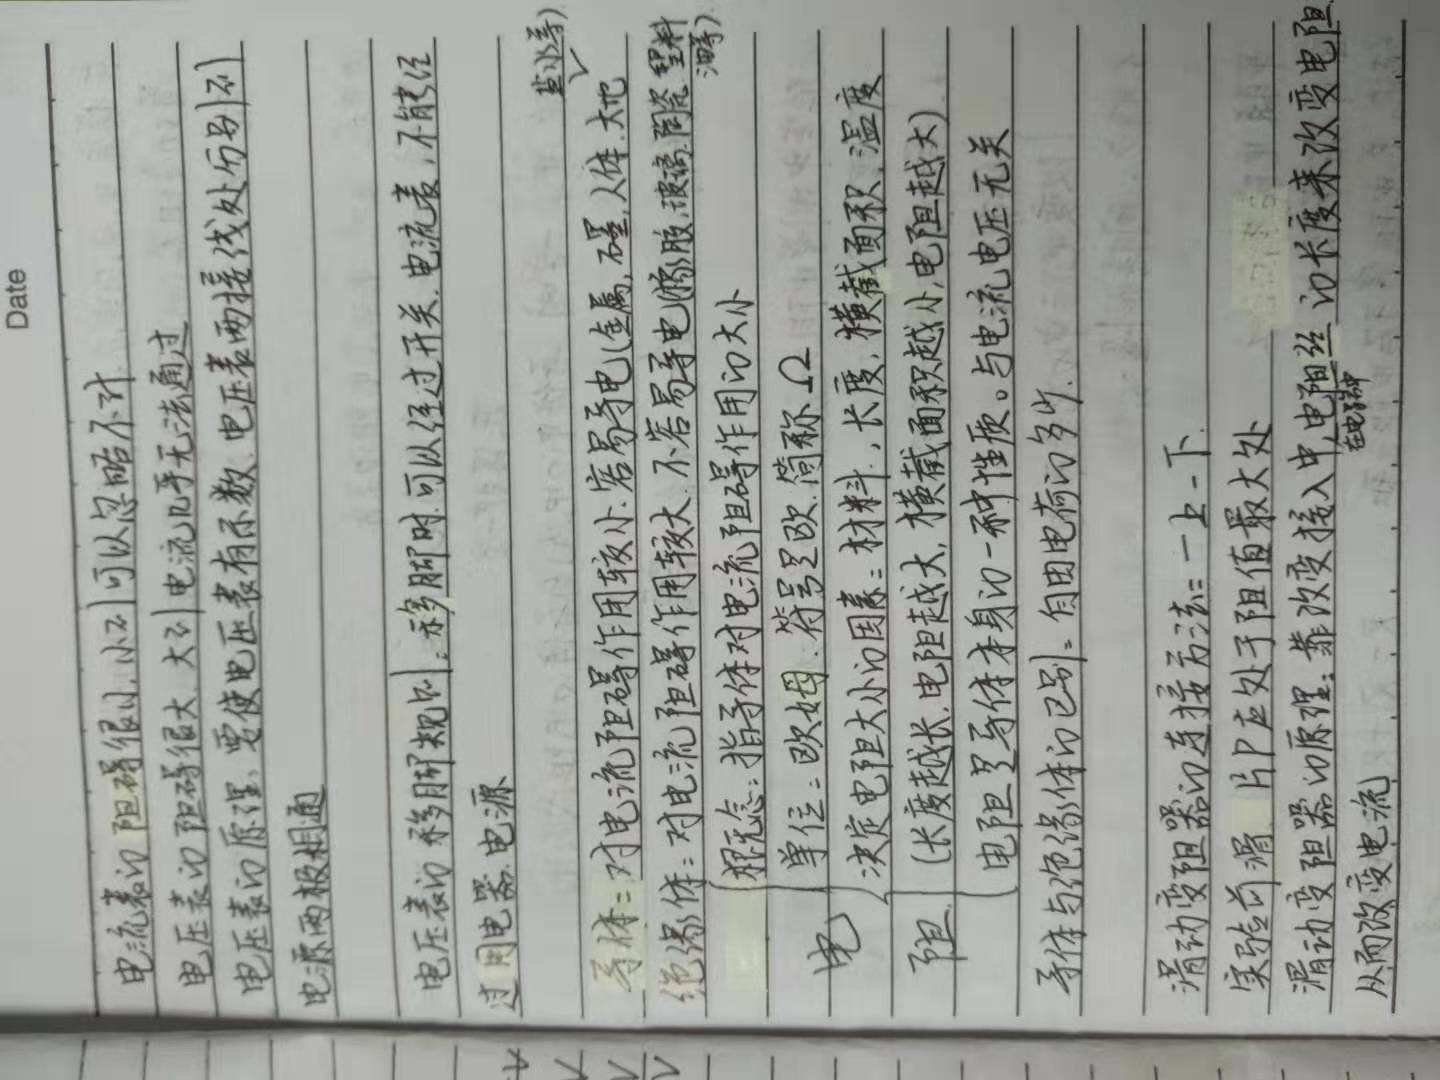 Date
电流表的阻碍很小,小到可以忽略不计
电压表的阻碍很大,大到电流几乎无法通过
电压表的原理:要使电压表有示数,电压表两接线处分别到
电源两极相通
电压表的移脚规则:移脚时可以经过开关、电流表,不能经
过用电器、电源
导体:对电流阻碍作用较小,容易导电(金属、石墨、人体、大地
盐水等)
绝缘体:对电流阻碍作用较大,不容易导电(橡胶、玻璃、陶瓷、塑料
油等)
电阻
概念:指导体对电流阻碍作用的大小
单位:欧姆.符号是欧.简称Ω
决定电阻大小的因素:材料、长度,横截面积,温度
(长度越长,电阻越大,横截面积越小,电阻越大)
电阻是导体本身的一种性质。与电流电压无关
导体与绝缘体的区别:自由电荷的多少.
滑动变阻器的连接方法:一上一下
实验前滑 片P应处于阻值最大处
滑动变阻器的原理:靠改变接入中电阻丝的长度来改变电阻
在电路中
从而改变电流